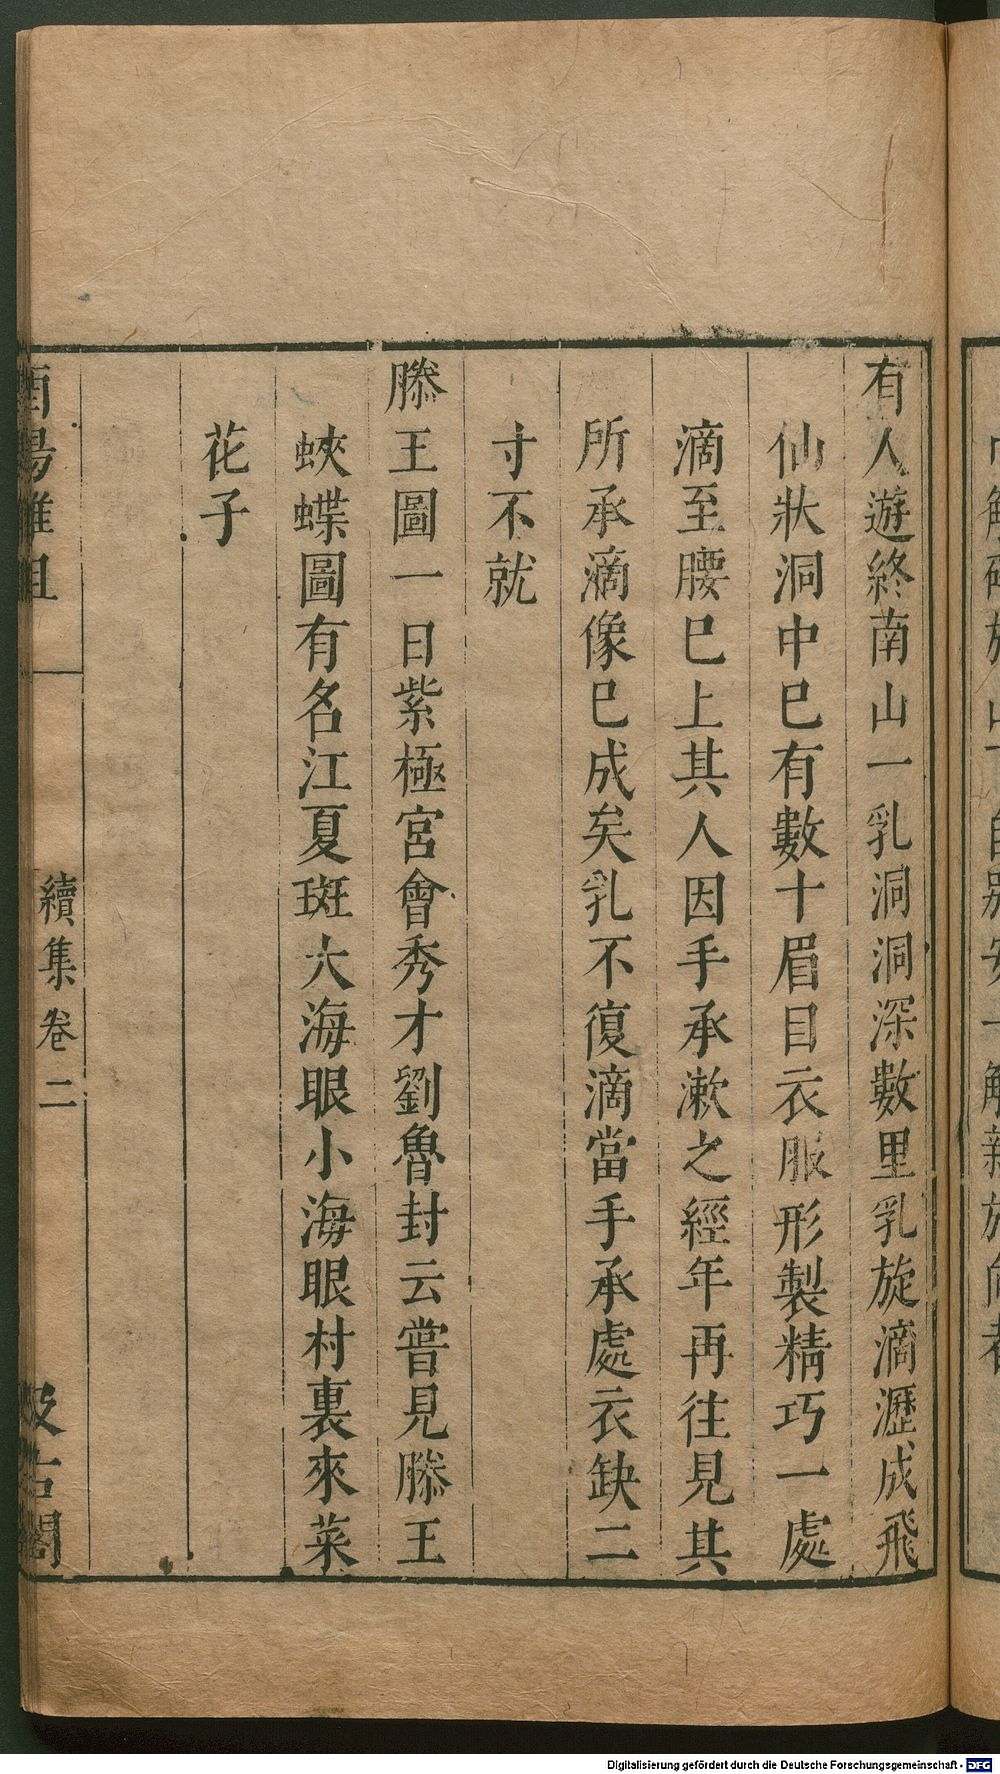 有人遊終南山一乳洞洞深數里乳旋滴瀝成飛
仙狀洞中巳有數十眉目衣服形製精巧一處
滴至腰巳上其人因手承漱之經年再往見其
所承滴像巳成矣乳不復滴當手承處衣缺二
寸不就
滕王圖一日紫極宮會秀才劉魯封云嘗見滕王
蛺蝶圖有名江夏斑大海眼小海眼村裏來菜
花子
酉陽雜俎
續集卷二
汲古閣
Digitalisierung gefördert durch die Deutsche Forschungsgemeinschaft - DFG